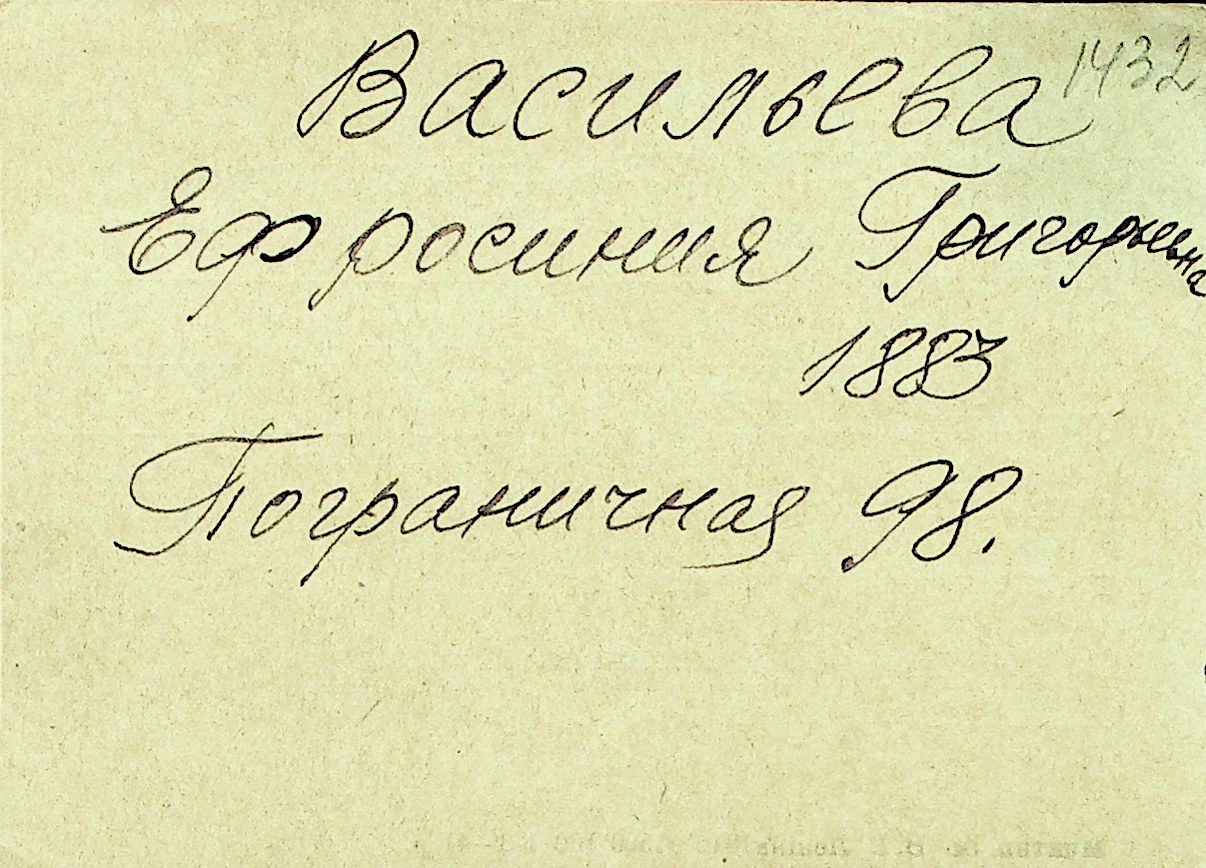 Васильева 1432
Ефросиния Григорьевна
1883
Пограничная 98.